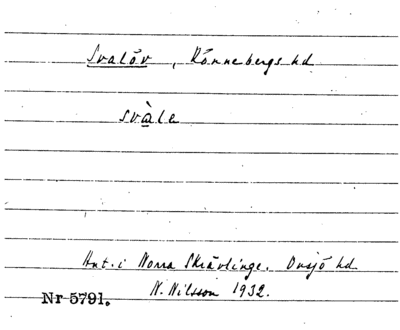 Svalöv, Rönnebergs hd
svàle
Ant. i Norra Skrävlinge. Onsjö hd
N. Nilsson 1932.
Nr 5791.